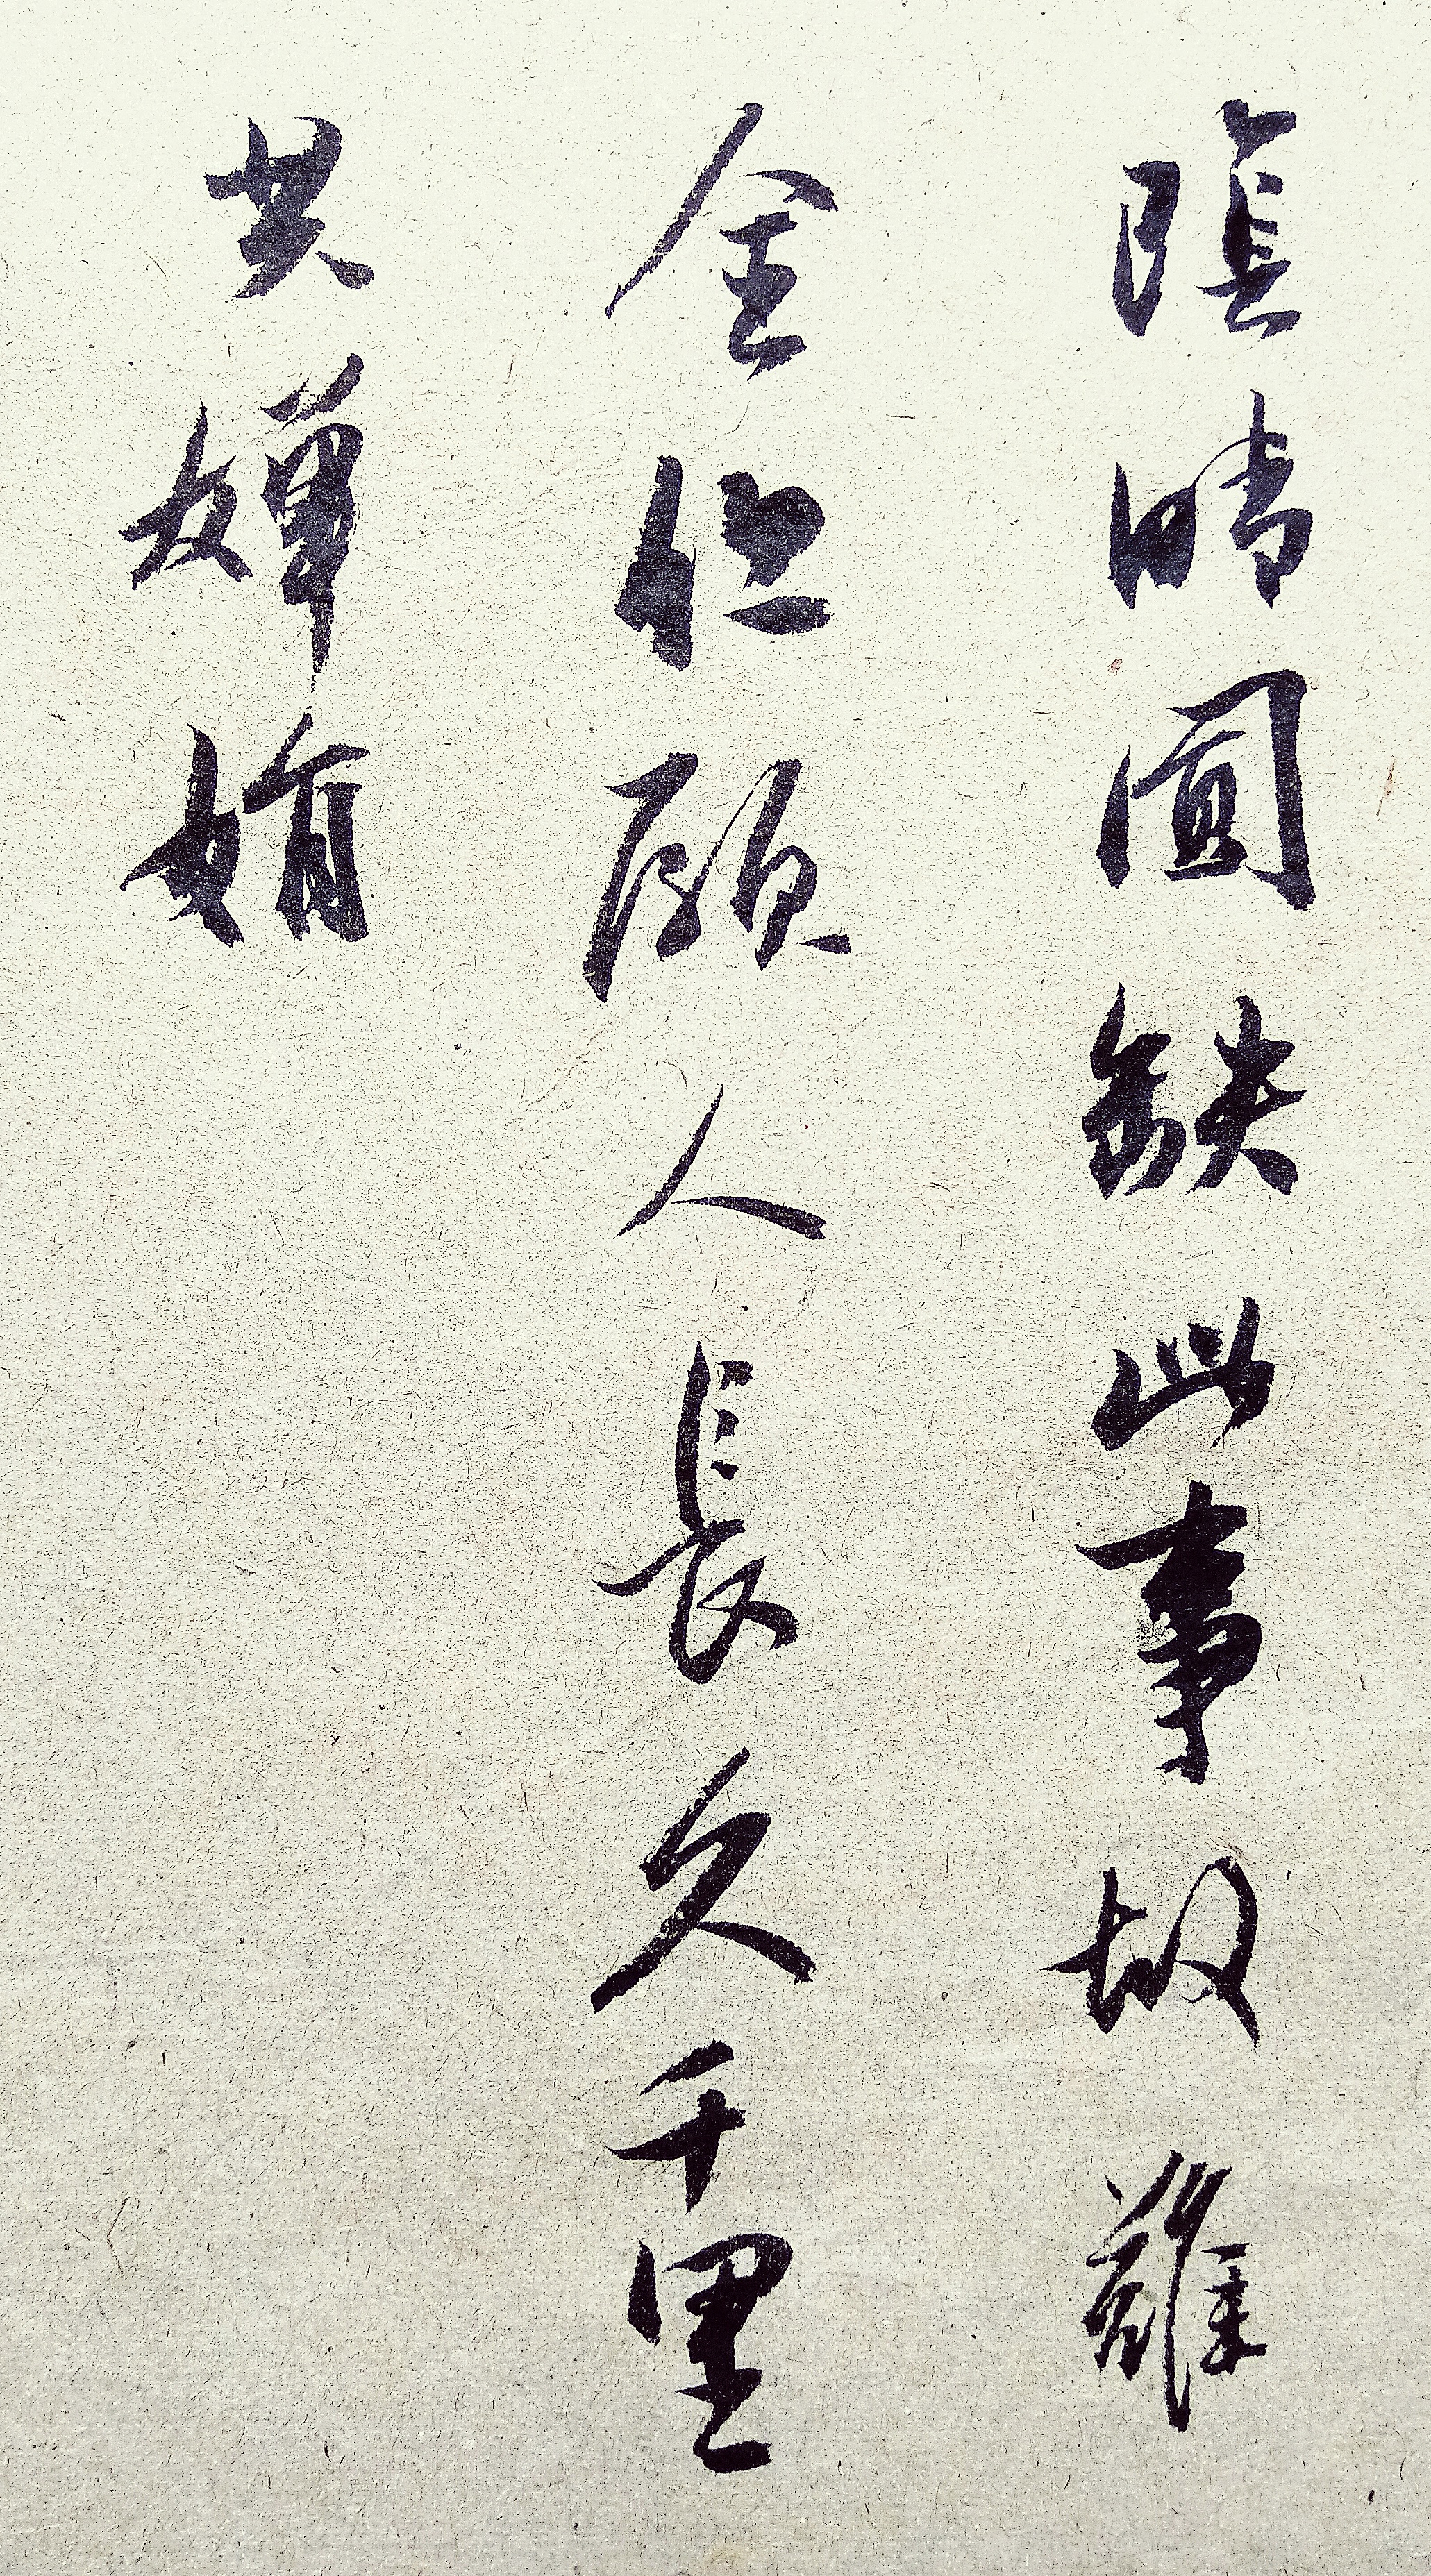 陰晴圓缺此事故難
全但願人長久千里
共嬋娟